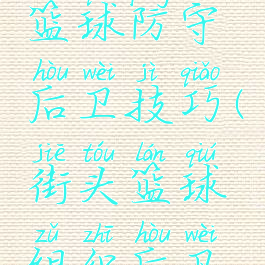 篮球防守
hòu wèi jì qiǎo
后卫技巧(
jiē tóu lán qiú
街头篮球
zǔ zhī hòu wèi
组织后卫